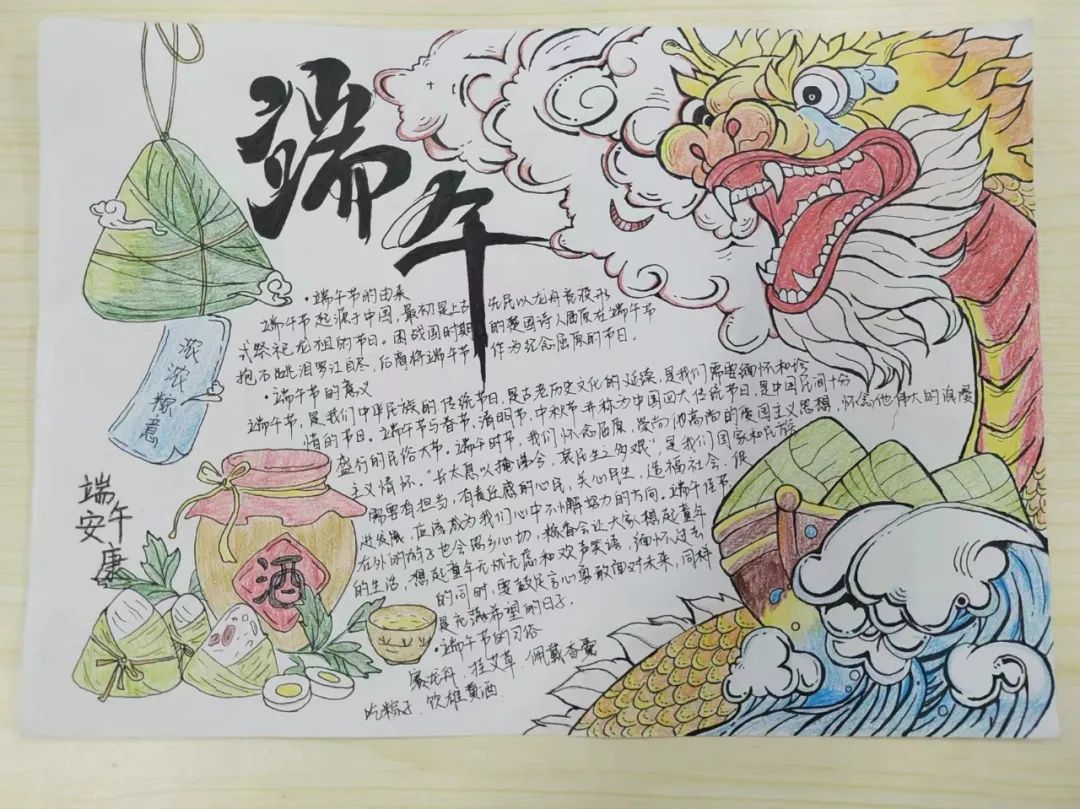 端午
浓浓粽意
端午
安康
酒
·端午节的由来
端午节起源于中国,最初是上古先民以龙舟竞渡形
式祭祀龙祖的节日。因战国时期的楚国诗人屈原在端午节
抱石跳汨罗江自尽,后商将端午节作为纪念屈原的节日。
·端午节的意义
端午节,是我们中华民族的传统节日,是古老历史文化的延续,是我们需要缅怀和
情的节日。端午节与春节、清明节、中秋节并称为中国四大传统节日,是中国民间十分
盛行的民俗大节。端午时节,我们怀念屈原,崇尚他高尚的爱国主义思想,怀念他伟大的浪漫
主义情怀。"长太息以掩涕兮,哀民生之多艰"是我们国家和民族
需要有担当,有责任感的心民,关心民生,造福社会,促
进发展,应该成为我们心中不懈努力的方向。端午佳节,
在外的游子也会思乡心切,粽香会让大家想起童年
的生活,想起童年无忧无虑和欢声笑语,缅怀过去
的同时,要鼓足信心勇敢面对未来,同样
是充满希望的日子。
·端午节的习俗
赛龙舟、挂艾草、佩戴香囊
吃粽子、饮雄黄酒